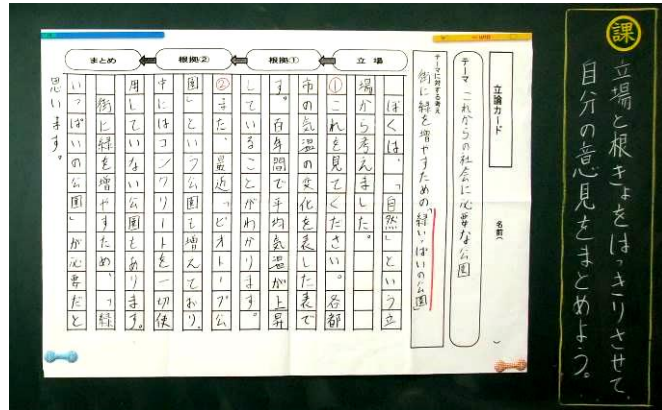 課
立場と根きょをはっきりさせて、
自分の意見をまとめよう。
立論カード
名前(　)
テーマ これからの社会に必要な公園
テーマに対する考え
街に緑を増やすための「緑いっぱいの公園」
立場
根拠①
根拠②
まとめ
ぼくは、「自然」という立
場から考えました。
①これを見てください。各都
市の気温の変化を表した表で
す。百年間で平均気温が上昇
していることがわかります。
②また、最近「ビオトープ公
園」という公園も増えており、
中にはコンクリートを一切使
用していない公園もあります。
街に緑を増やすため、「緑
いっぱいの公園」が必要だと
思います。